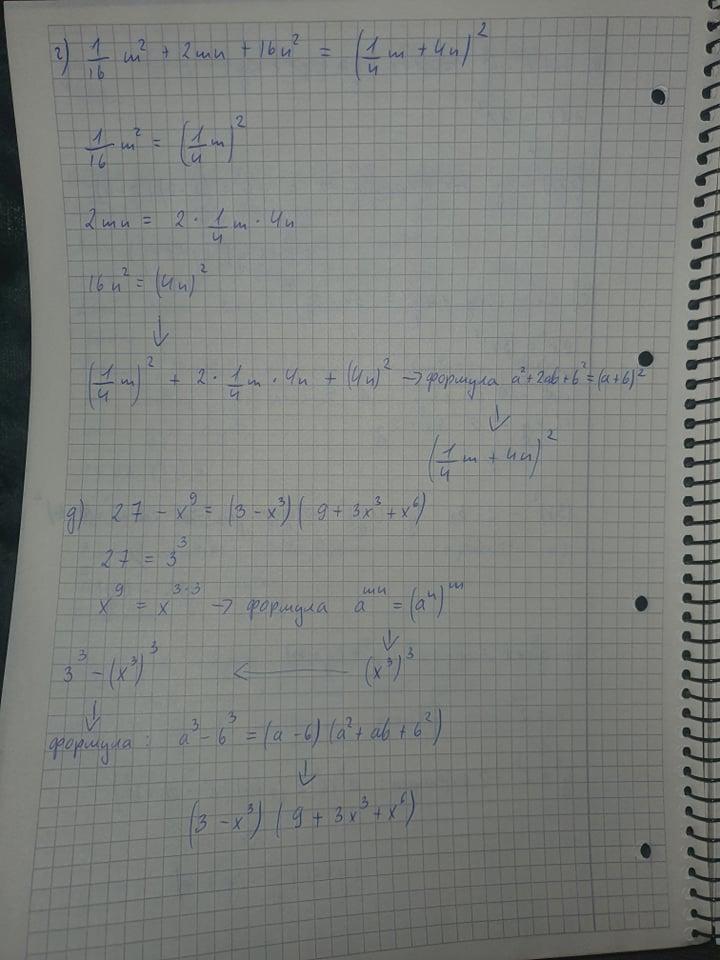 г) 1/16 m² + 2mn + 16n² = (1/4 m + 4n)²
1/16 m² = (1/4 m)²
2mn = 2 · 1/4 m · 4n
16n² = (4n)²
↓
(1/4 m)² + 2 · 1/4 m · 4n + (4n)² → формула a² + 2ab + b² = (a + b)²
↓
(1/4 m + 4n)²
д) 27 - x⁹ = (3 - x³)(9 + 3x³ + x⁶)
27 = 3³
x⁹ = x³·³ → формула aᵐⁿ = (aⁿ)ᵐ
↓
3³ - (x³)³ ← (x³)³
↓
формула: a³ - b³ = (a - b)(a² + ab + b²)
↓
(3 - x³)(9 + 3x³ + x⁶)